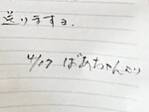 送ります。
4/17 ばあちゃんより